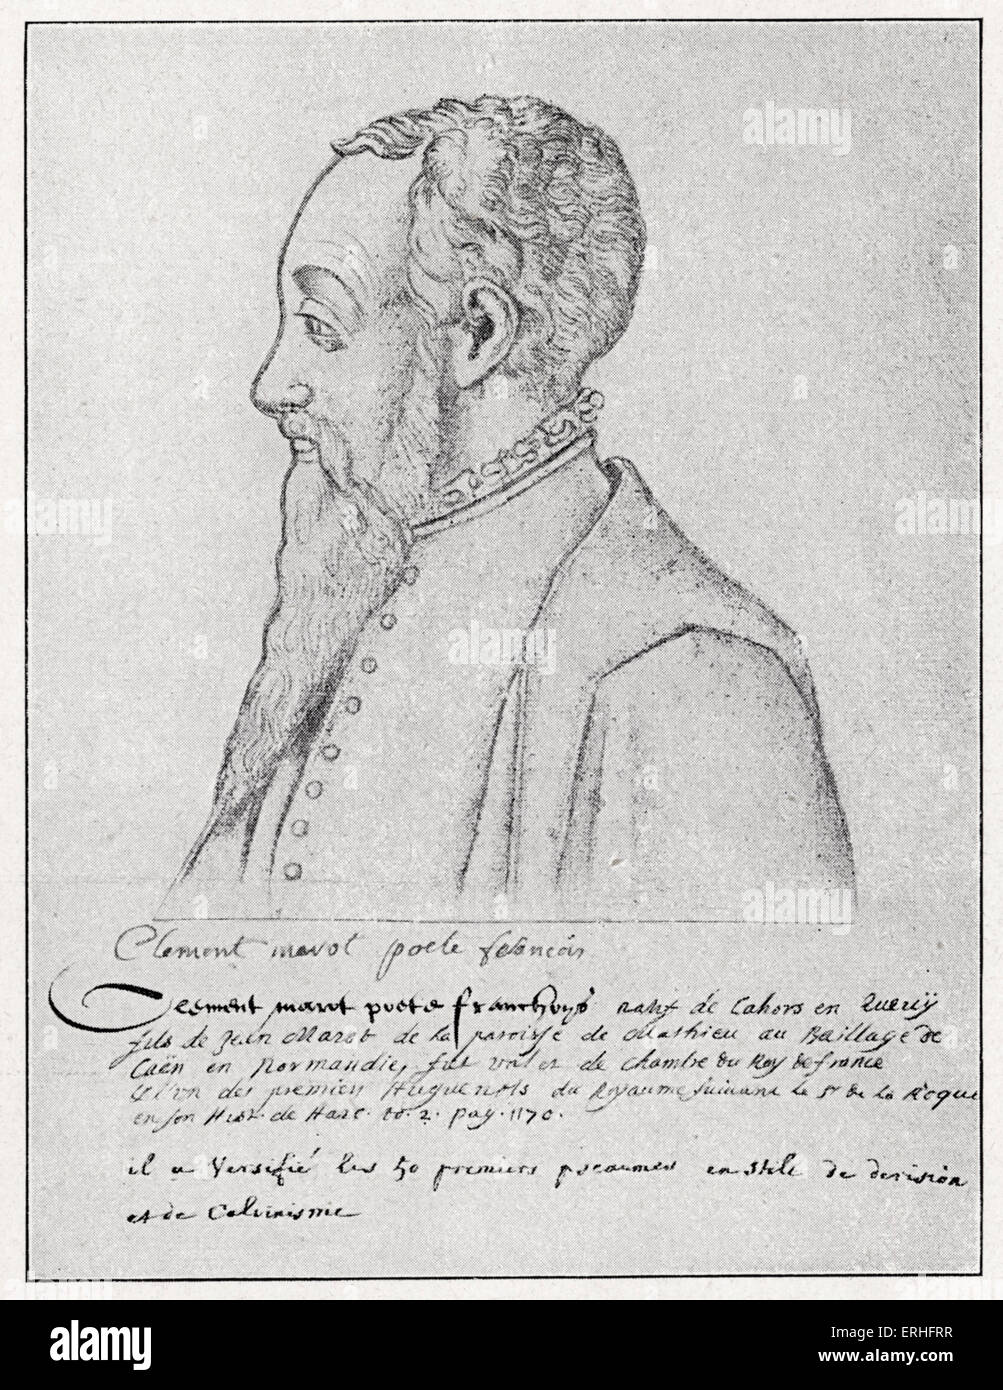 Clement marot poete francois
Clement marot poete franchoys natif de Cahors en Quercÿ
fils de Jean Marot de la paroisse de Mathieu au Baillage de
Caën en Normandie, fut valet de chambre du Roy de france
des premiers Huguenots du Royaume suivant le Sr de la Roque
en son Hist. de Harc. to. 2. pag. 1170.
il a Versifié les 50 premiers pseaumes en stile de derision
et de Calvinisme
alamy
Image ID: ERHFRR
www.alamy.com